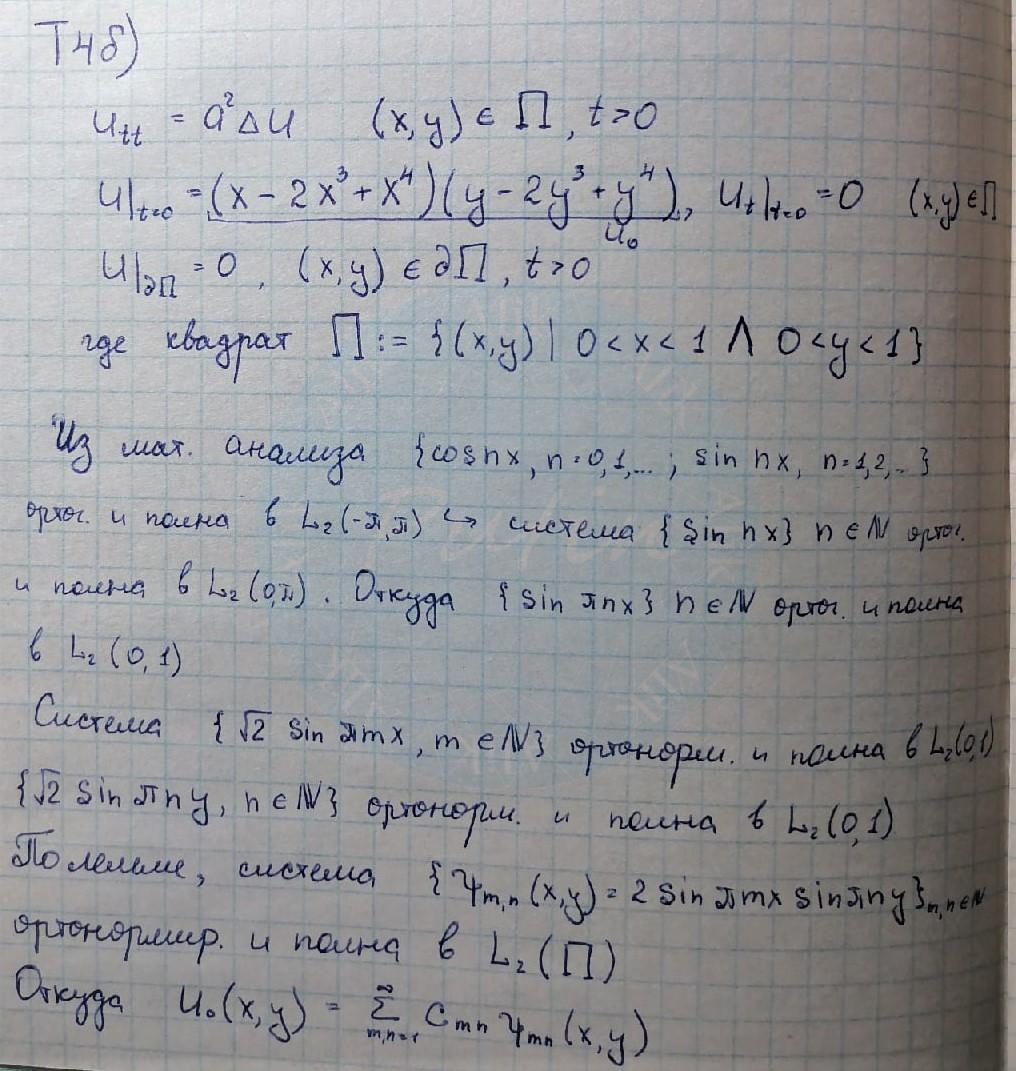 Т4б)
u_{tt} = a²Δu (x,y) ∈ Π, t>0
u|_{t=0} = (x - 2x³ + x⁴)(y - 2y³ + y⁴), u_t|_{t=0} = 0 (x,y) ∈ Π
u₀
u|_{∂Π} = 0, (x,y) ∈ ∂Π, t>0
где квадрат Π := {(x,y) | 0<x<1 ∧ 0<y<1}
Из мат. анализа {cos nx, n=0,1,...; sin nx, n=1,2,..}
ортог. и полна в L₂(-π,π) ↪ система {sin nx} n∈ℕ ортог.
и полна в L₂(0,π). Откуда {sin πnx} n∈ℕ ортог. и полна
в L₂(0,1)
Система {√2 sin πmx, m∈ℕ} ортонорм. и полна в L₂(0,1)
{√2 sin πny, n∈ℕ} ортонорм. и полна в L₂(0,1)
По лемме, система {ψ_{m,n}(x,y) = 2 sin πmx sin πny}_{m,n∈ℕ}
ортонормир. и полна в L₂(Π)
Откуда u₀(x,y) = ∑_{m,n=1}^{∞} c_{mn} ψ_{mn}(x,y)